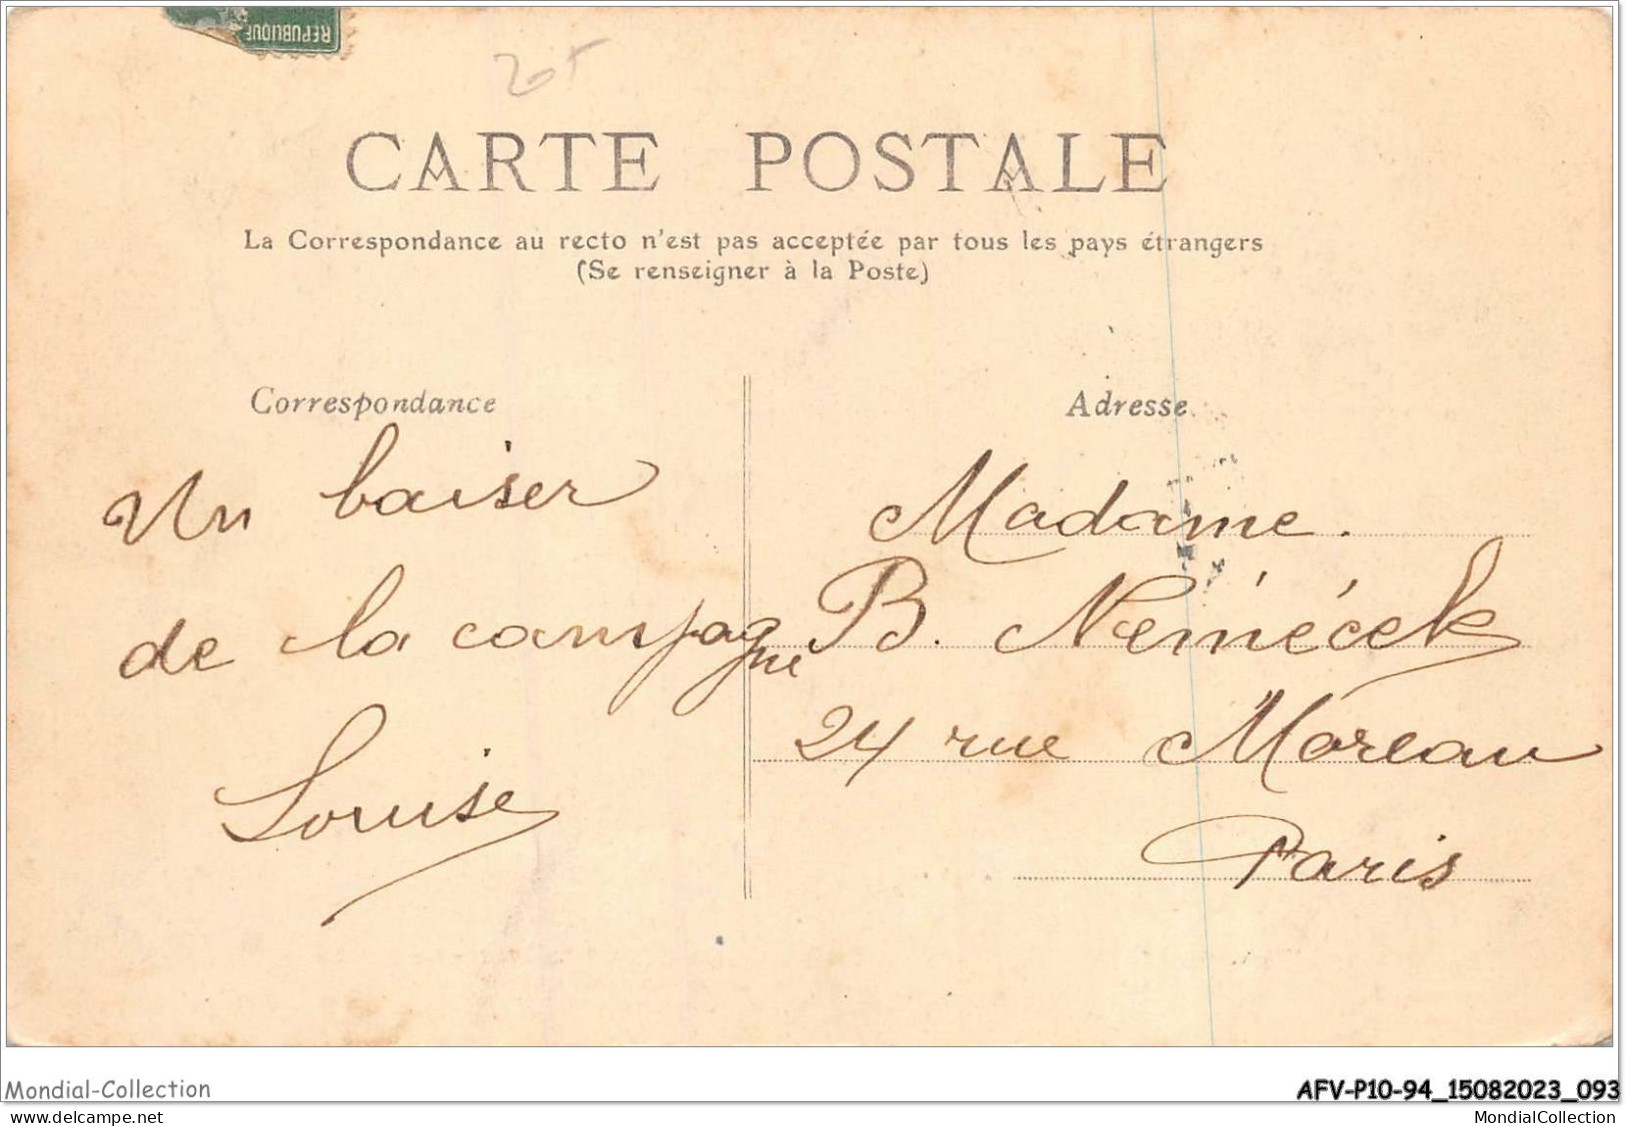 REPUBLIQUE
205
CARTE POSTALE
La Correspondance au recto n'est pas acceptée par tous les pays étrangers
(Se renseigner à la Poste)
Correspondance
Un baiser
de la campagne
Louise
Adresse
Madame.
B. Némécek
24 rue Moreau
Paris
Mondial-Collection
AFV-P10-94_15082023_093
www.delcampe.net
MondialCollection